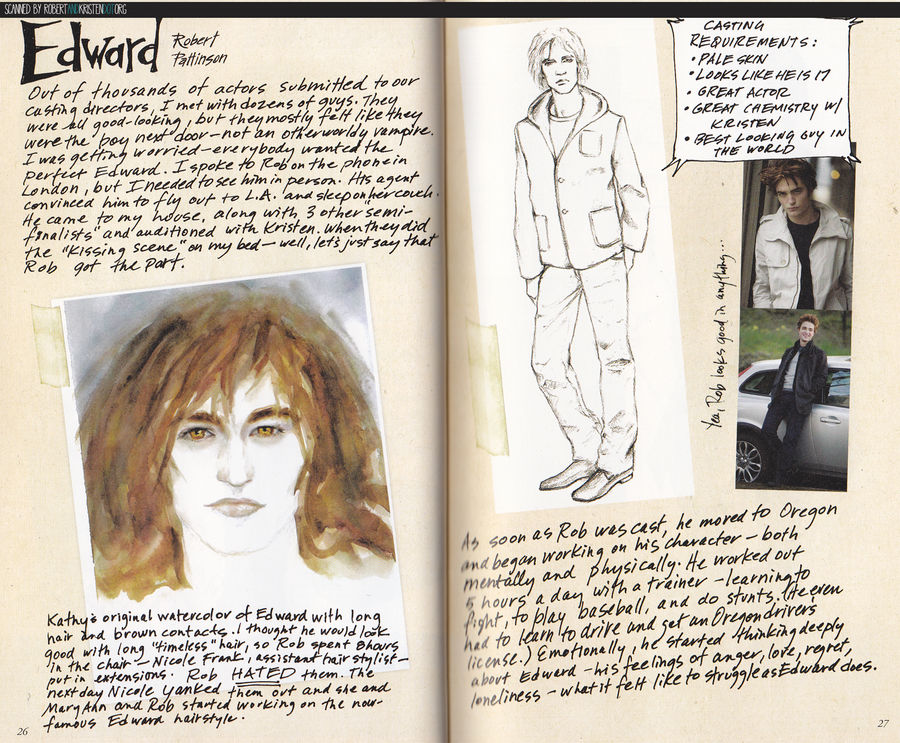 SCANNED BY ROBERTANDKRISTENDOTORG
Edward
Robert
Pattinson
Out of thousands of actors submitted to our
casting directors, I met with dozens of guys. They
were all good-looking, but they mostly felt like they
were the "boy next door"—not an otherworldy vampire.
I was getting worried—everybody wanted the
perfect Edward. I spoke to Rob on the phone in
London, but I needed to see him in person. His agent
convinced him to fly out to L.A. and sleep on her couch.
He came to my house, along with 3 other "semi-
finalists" and auditioned with Kristen. When they did
the "Kissing scene" on my bed—well, let's just say that
Rob got the part.
Kathy's original watercolor of Edward with long
hair and brown contacts. I thought he would look
good with long "timeless" hair, so Rob spent 8 hours
in the chair—Nicole Frank, assistant hair stylist—
put in extensions. Rob HATED them. The
next day Nicole yanked them out and she and
Mary Ann and Rob started working on the now-
famous Edward hairstyle.
26
CASTING
REQUIREMENTS:
• PALE SKIN
• LOOKS LIKE HE IS 17
• GREAT ACTOR
• GREAT CHEMISTRY W/
KRISTEN
• BEST LOOKING GUY IN
THE WORLD
Yea, Rob looks good in anything...
As soon as Rob was cast, he moved to Oregon
and began working on his character—both
mentally and physically. He worked out
5 hours a day with a trainer—learning to
fight, to play baseball, and do stunts. (He even
had to learn to drive and get an Oregon drivers
license.) Emotionally, he started thinking deeply
about Edward—his feelings of anger, love, regret,
loneliness—what it felt like to struggle as Edward does.
27